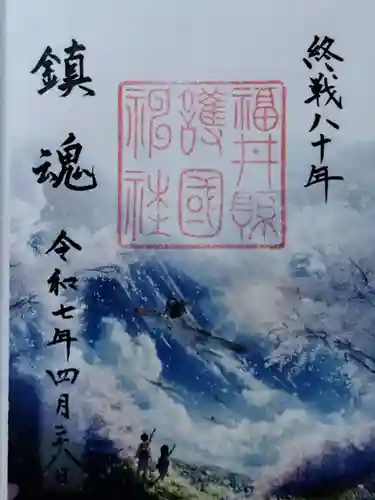 終戦八十年
福井縣
護國
神社
鎮魂
令和七年四月二八日